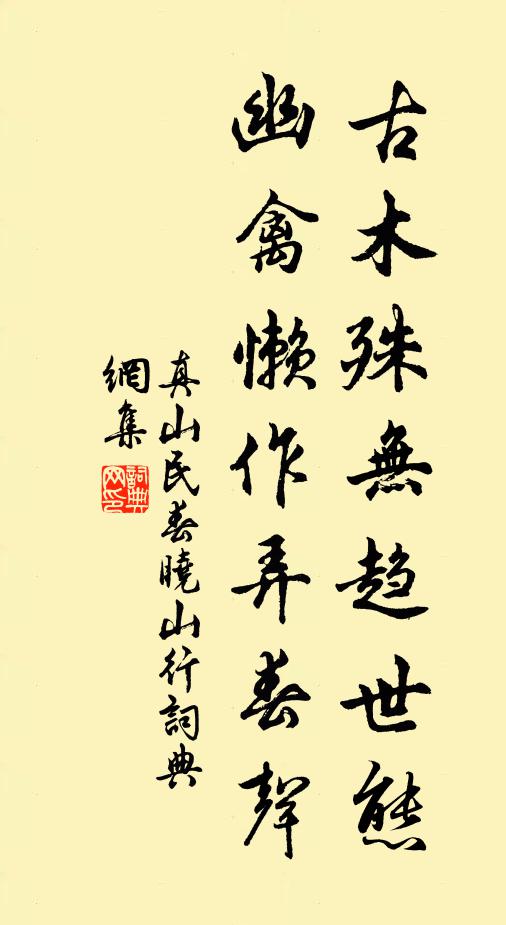 古木殊無趨世態
幽禽懶作弄春聲
真山民春曉山行詞典
網集
詞典網印